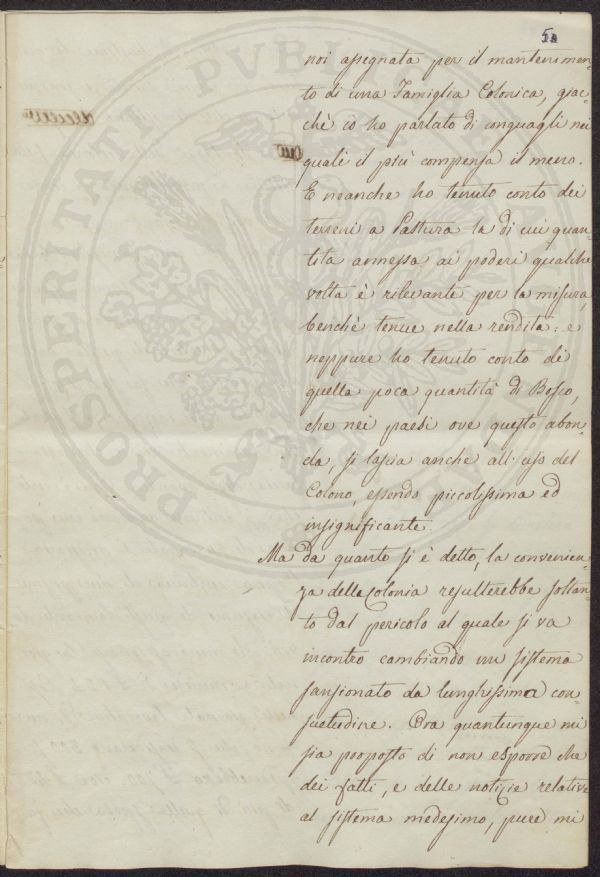 54
noi assegnata per il mantenimen-
to di una Famiglia Colonica, giac-
chè io ho parlato di conguagli nei
quali il più compensa il meno.
E neanche ho tenuto conto dei
terreni a Pastura la di cui quan-
tità annessa ai poderi qualche
volta è rilevante per la misura,
benchè tenue nella rendita: e
neppure ho tenuto conto di
quella poca quantità di Bosco,
che nei paesi ove questo abon-
da, si lascia anche all'uso del
Colono, essendo piccolissima ed
insignificante.
Ma da quanto si è detto, la convenien-
za della Colonia resulterebbe soltan-
to dal pericolo al quale si va
incontro cambiando un sistema
sansionato da lunghissima con-
suetudine. Ora quantunque mi
sia proposto di non esporre che
dei fatti, e delle notizie relative
al sistema medesimo, pure mi
PROSPERITATI PUBLICAE